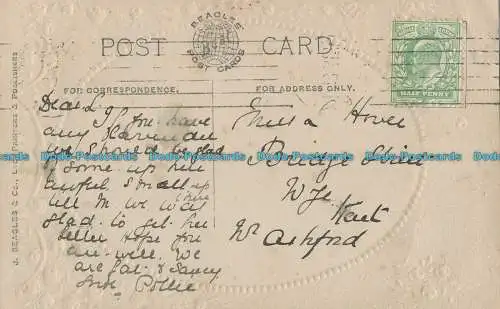 BEAGLES'
POST CARDS
POST CARD
HALF PENNY
FOR CORRESPONDENCE.
FOR ADDRESS ONLY.
J. BEAGLES & CO.,
Dear L.
If you have
any
we should be glad
of some up here
awful small up here
tell M. we was
glad to get her
letter Hope you
are well. We
are fat & saucy
love Pollie
Hover
Bridge
Wye
Kent
Nr Ashford
Dodo-Postcards Dodo-Postcards Dodo-Postcards Dodo-Postcards Dodo-Postcards Dodo-Postcards